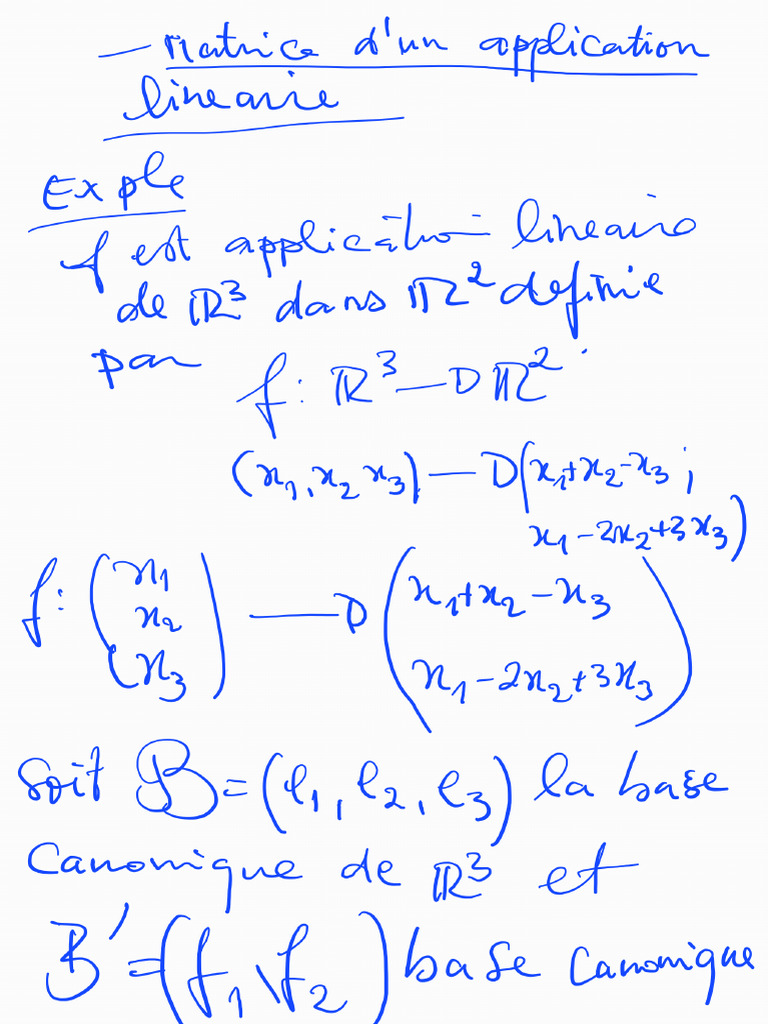 — Matrice d'un application
lineaire
Exple
f est application lineaire
de ℝ³ dans ℝ² definie
par f: ℝ³ —▷ ℝ²
(x₁, x₂ x₃) —▷ (x₁+x₂-x₃ ;
x₁-2x₂+3x₃)
f: (x₁ x₂ x₃) —▷ (x₁+x₂-x₃
x₁-2x₂+3x₃)
Soit B=(e₁, e₂, e₃) la base
Canonique de ℝ³ et
B'=(f₁, f₂) base canonique